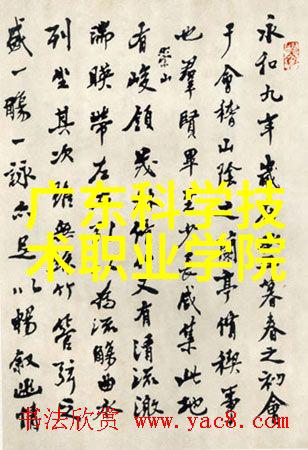 永和九年歲暮春之初會
于會稽山陰之蘭亭脩稧事
也羣賢畢至少長咸集此地
有崇山峻領茂林脩竹又有清流激
湍暎帶左右為流觴曲水
列坐其次雖無竹管弦之
盛一觴一詠亦足以暢敘幽情
广东科学技
术职业学院
书法欣赏 www.yac8.com